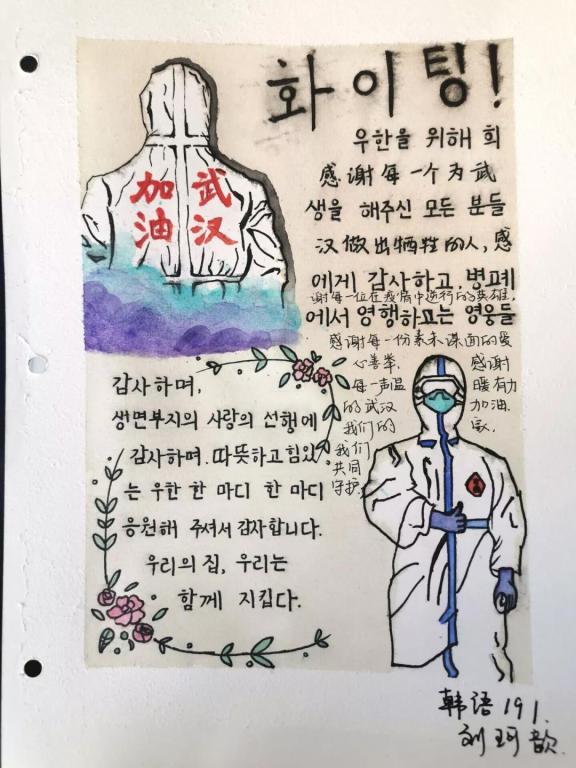 加 武
油 汉
화이팅!
우한을 위해 희
感谢每一个为武
생을 해주신 모든 분들
汉做出牺牲的人,感
에게 감사하고, 병폐
谢每一位在疫情中逆行的英雄,
에서 영행하고는 영웅들
感谢每一份素未谋面的爱
心善举. 感谢
每一声温 暖有力
的武汉 加油.
我们的 家,
我们
共同
守护.
감사하며,
생면부지의 사랑의 선행에
감사하며. 따뜻하고 힘있
는 우한 한 마디 한 마디
응원해 주셔서 감사합니다.
우리의 집, 우리는
함께 지킵다.
韩语191.
刘珂歆.